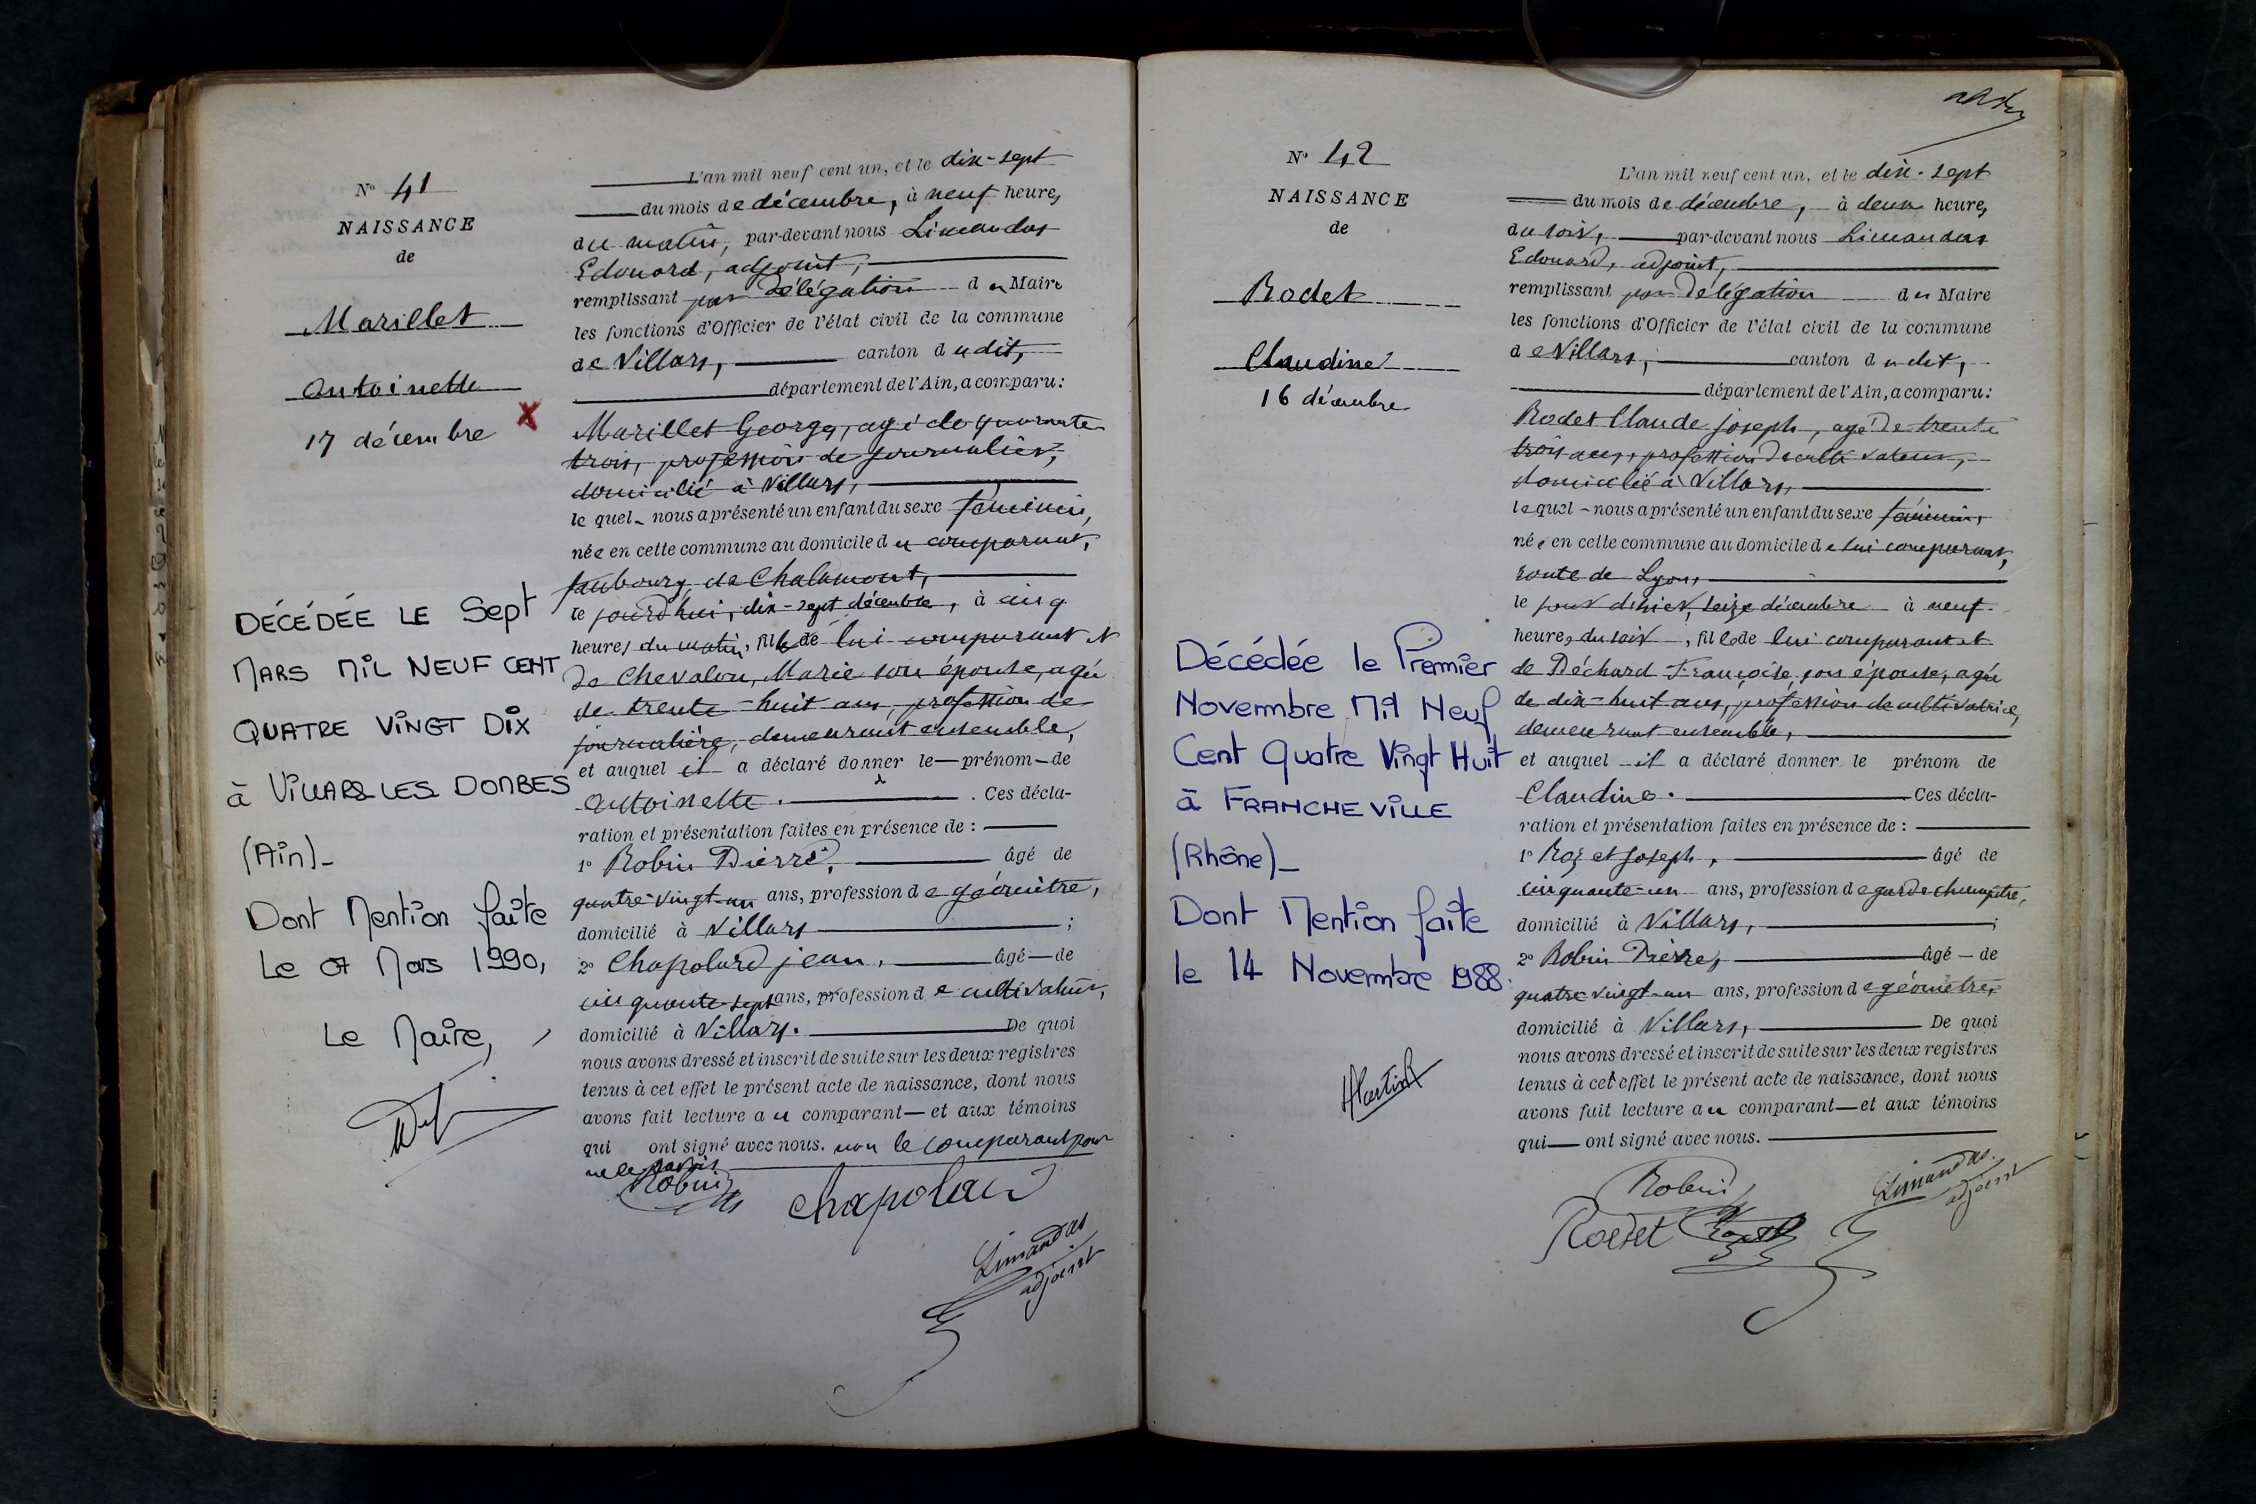 N° 41
NAISSANCE
de
Marillet
Antoinette
17 décembre
X
DÉCÉDÉE LE Sept
MARS MIL NEUF CENT
QUATRE VINGT DIX
à VILLARS LES DOMBES
(Ain)_
Dont Mention faite
Le 07 Mars 1990,
Le Maire,
L'an mil neuf cent un, et le dix-sept
du mois de décembre, à neuf heures
du matin, par-devant nous Limandas
Edouard, adjoint,
remplissant par délégation du Maire
les fonctions d'Officier de l'état civil de la commune
de Villars, canton dudit,
département de l'Ain, a comparu:
Marillet George, agé de quarante
trois, profession de journalier,
domicilié à Villars,
lequel nous a présenté un enfant du sexe féminin,
née en cette commune au domicile du comparant,
faubourg de Chalamont,
le jourd'hui, dix-sept décembre, à cinq
heures du matin, fille de lui comparant et
de Chevalon, Marie son épouse, agée
de trente-huit ans, profession de
journalière, demeurant ensemble,
et auquel il a déclaré donner le prénom de
Antoinette. Ces décla-
ration et présentation faites en présence de :
1° Robin Pierre, âgé de
quatre-vingt-un ans, profession de géomètre,
domicilié à Villars ;
2° Chapolard jean, âgé de
cinquante-sept ans, profession de cultivateur,
domicilié à Villars. De quoi
nous avons dressé et inscrit de suite sur les deux registres
tenus à cet effet le présent acte de naissance, dont nous
avons fait lecture au comparant et aux témoins
qui ont signé avec nous. non le comparant pour
ne le savoir
Robin
Chapolard
Limandas
adjoint
N° 42
NAISSANCE
de
Rodet
Claudine
16 décembre
Décédée le Premier
Novembre Mil Neuf
Cent Quatre Vingt Huit
à FRANCHEVILLE
(Rhône)_
Dont Mention faite
le 14 Novembre 1988.
L'an mil neuf cent un, et le dix-sept
du mois de décembre, à deux heures
du soir, par-devant nous Limandas
Edouard, adjoint,
remplissant par délégation du Maire
les fonctions d'Officier de l'état civil de la commune
de Villars, canton dudit,
département de l'Ain, a comparu:
Rodet Claude joseph, agé de trente
trois ans, profession de cultivateur,
domicilié à Villars,
lequel nous a présenté un enfant du sexe féminin,
née en cette commune au domicile de lui comparant,
route de Lyon,
le jour d'hier, seize décembre à neuf
heures du soir, fille de lui comparant et
de Déchard Françoise, son épouse, agée
de dix-huit ans, profession de cultivatrice,
demeurant ensemble,
et auquel il a déclaré donner le prénom de
Claudine. Ces décla-
ration et présentation faites en présence de :
1° Rozet Joseph, âgé de
cinquante-un ans, profession de garde champêtre,
domicilié à Villars, ;
2° Robin Pierre, âgé de
quatre vingt-un ans, profession de géomètre,
domicilié à Villars, De quoi
nous avons dressé et inscrit de suite sur les deux registres
tenus à cet effet le présent acte de naissance, dont nous
avons fait lecture au comparant et aux témoins
qui ont signé avec nous.
Robin
Limandas
adjoint
Rodet